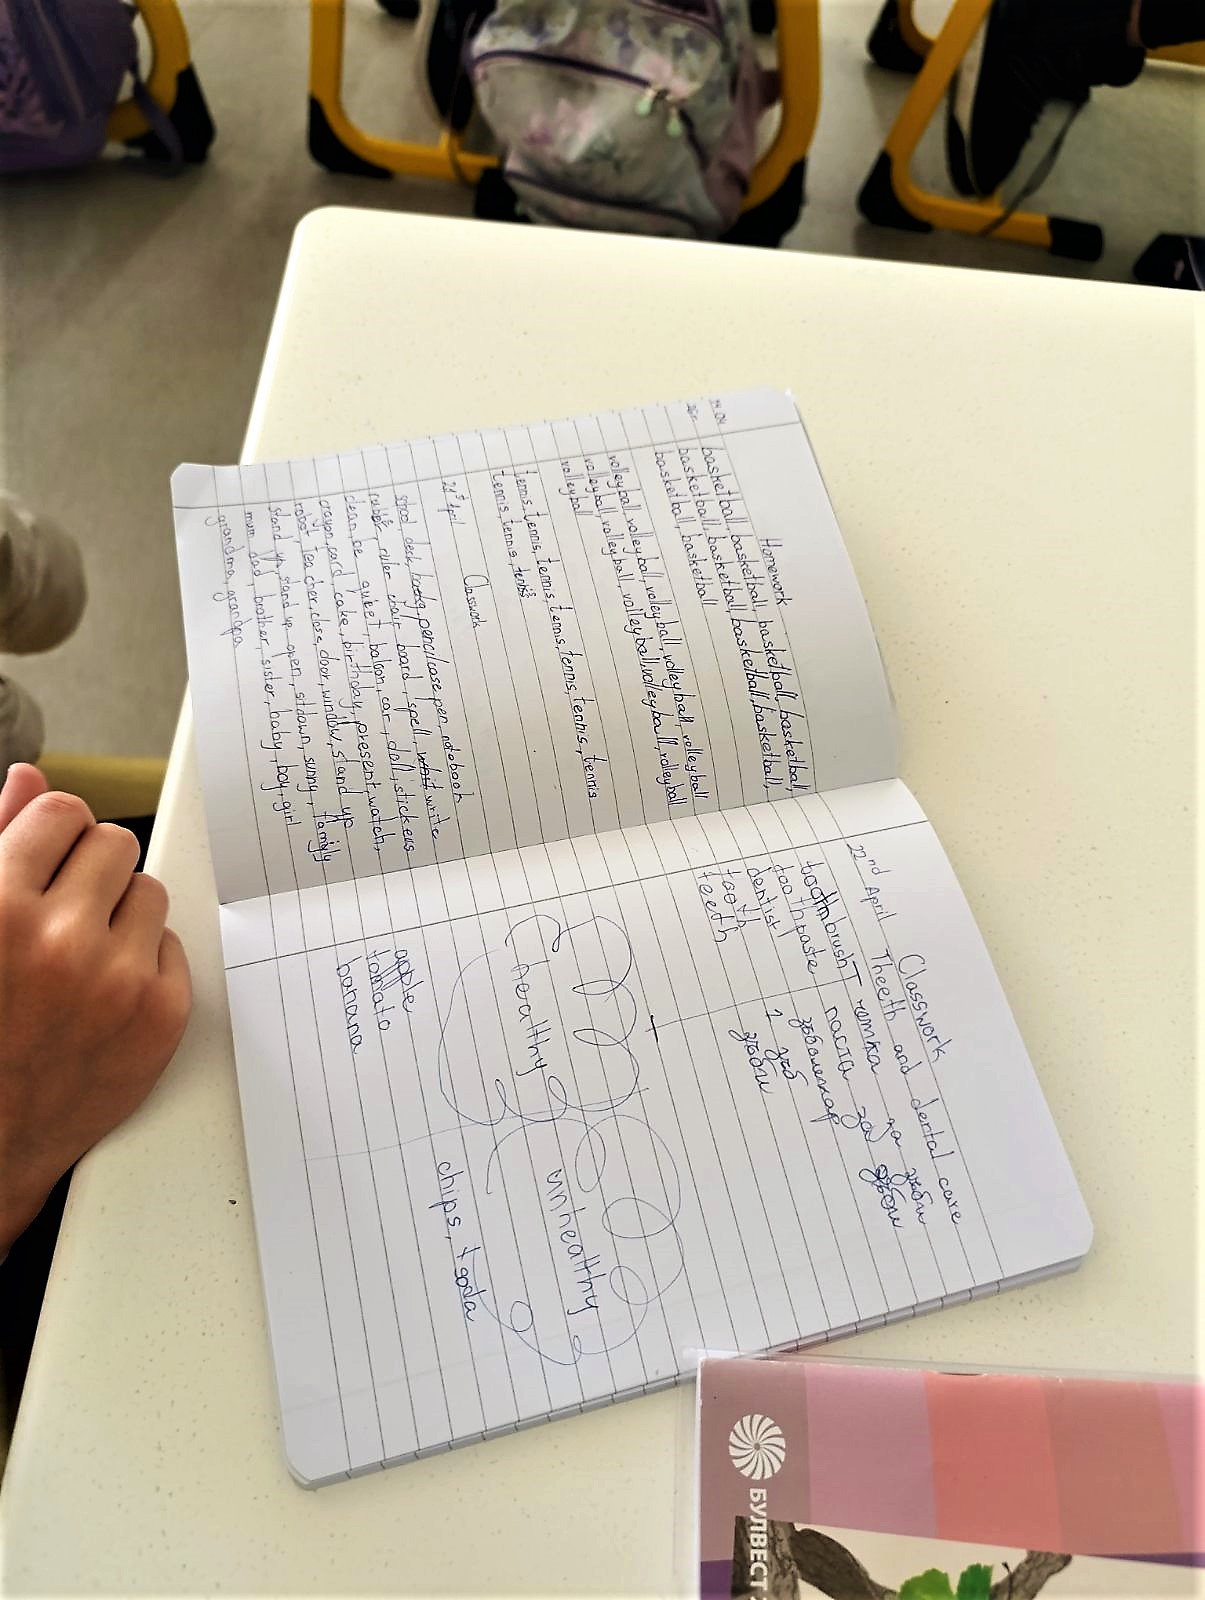 Homework
24.04
basketball, basketball, basketball, basketball,
basketball, basketball, basketball, basketball,
basketball, basketball
volleyball, volleyball, volleyball, volleyball, volleyball
volleyball, volleyball, volleyball, volleyball, volleyball
volleyball
tennis, tennis, tennis, tennis, tennis, tennis, tennis
tennis, tennis, tennis
Classwork
21st April
shool, desk, pencilcase, pen, notebook
ruler, chair, board, spell, write
clean, be quiet, baloon, car, doll, stickers
crayon, card, cake, birthday, present, watch,
robot, teacher, close, door, window, stand up
stand up, stand up, open, st down, sunny, family
mum, dad, brother, sister, baby, boy, girl
grandma, grandpa
Classwork
22nd April Theeth and dental care
toothbrush четка за зъби
toothpaste паста за зъби
dentist зъболекар
tooth 1 зъб
teeth зъби
healthy unhealthy
apple chips, soda
tomato
banana
БУЛВЕСТ